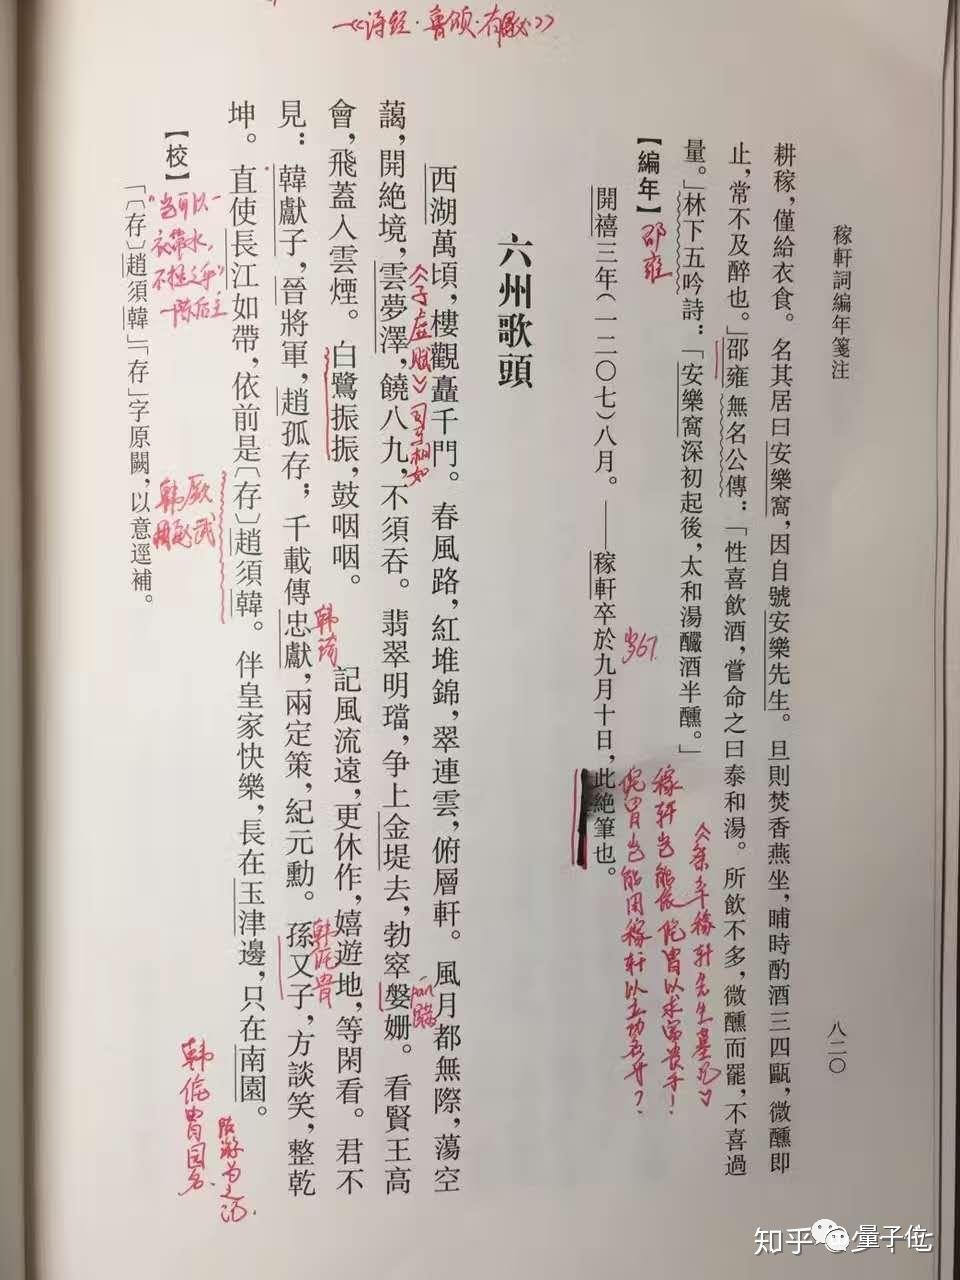 稼軒詞編年箋注
八二〇
耕稼，僅給衣食。名其居曰安樂窩，因自號安樂先生。旦則焚香燕坐，晡時酌酒三四甌，微醺即
止，常不及醉也。」邵雍無名公傳：「性喜飲酒，嘗命之曰泰和湯。所飲不多，微醺而罷，不喜過
量。」林下五吟詩：「安樂窩深初起後，太和湯釅酒半醺。」
【編年】
邵雍
開禧三年（一二〇七）八月。——稼軒卒於九月十日，此絕筆也。
歲67
《祭辛稼軒先生墓記》
稼軒豈能依侂冑以求富貴乎！
侂冑豈能用稼軒以立功名乎？
六州歌頭
西湖萬頃，樓觀矗千門。春風路，紅堆錦，翠連雲，俯層軒。風月都無際，蕩空
藹，開絕境，雲夢澤，饒八九，不須吞。翡翠明璫，争上金堤去，勃窣媻姗。看賢王高
會，飛蓋入雲煙。白鷺振振，鼓咽咽。
記風流遠，更休作，嬉遊地，等閑看。君不
見：韓獻子，晉將軍，趙孤存；千載傳忠獻，兩定策，紀元勳。孫又子，方談笑，整乾
坤。直使長江如帶，依前是〔存〕趙須韓。伴皇家快樂，長在玉津邊，只在南園。
《子虛賦》司马相如
一《诗经·鲁颂·有駜》
韩琦
韩侂胄
"岂可以一
衣带水，
不拯之乎"
一陈后主
韩厥
韩侂胄园名
【校】
「〔存〕趙須韓」「存」字原闕，以意逕補。
知乎
量子位